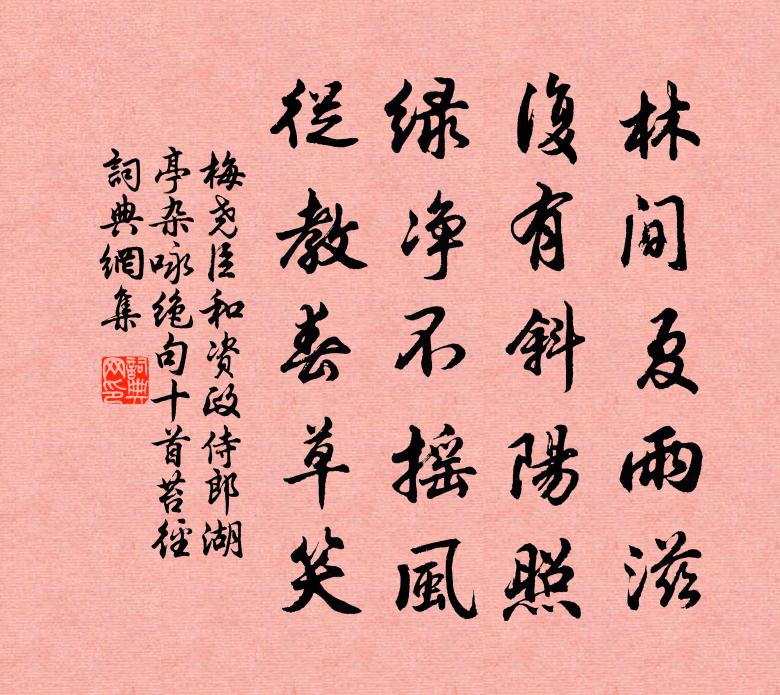 林间夏雨滋
復有斜陽照
緑净不摇風
從教春草笑
梅尧臣和资政侍郎湖
亭杂咏绝句十首苔徑
詞典網集
詞典网印